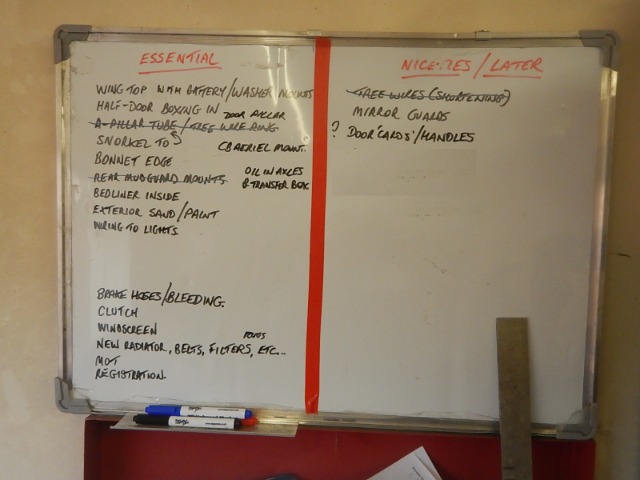 ESSENTIAL
WING TOP WITH BATTERY/WASHER MOUNTS
HALF-DOOR BOXING IN DOOR PILLAR
A-PILLAR TUBE/TREE WIRE RING
SNORKEL TO
CB AERIEL MOUNT.
BONNET EDGE
REAR MUDGUARD MOUNTS
OIL IN AXLES
& TRANSFER BOX
BEDLINER INSIDE
EXTERIOR SAND/PAINT
WIRING TO LIGHTS
BRAKE HOSES/BLEEDING.
CLUTCH
WINDSCREEN
NEW RADIATOR, BELTS, FILTERS, ETC...
MOT
REGISTRATION.
NICE-TIES/LATER
TREE WIRES (SHORTENING)
MIRROR GUARDS
? DOOR 'CARDS'/HANDLES